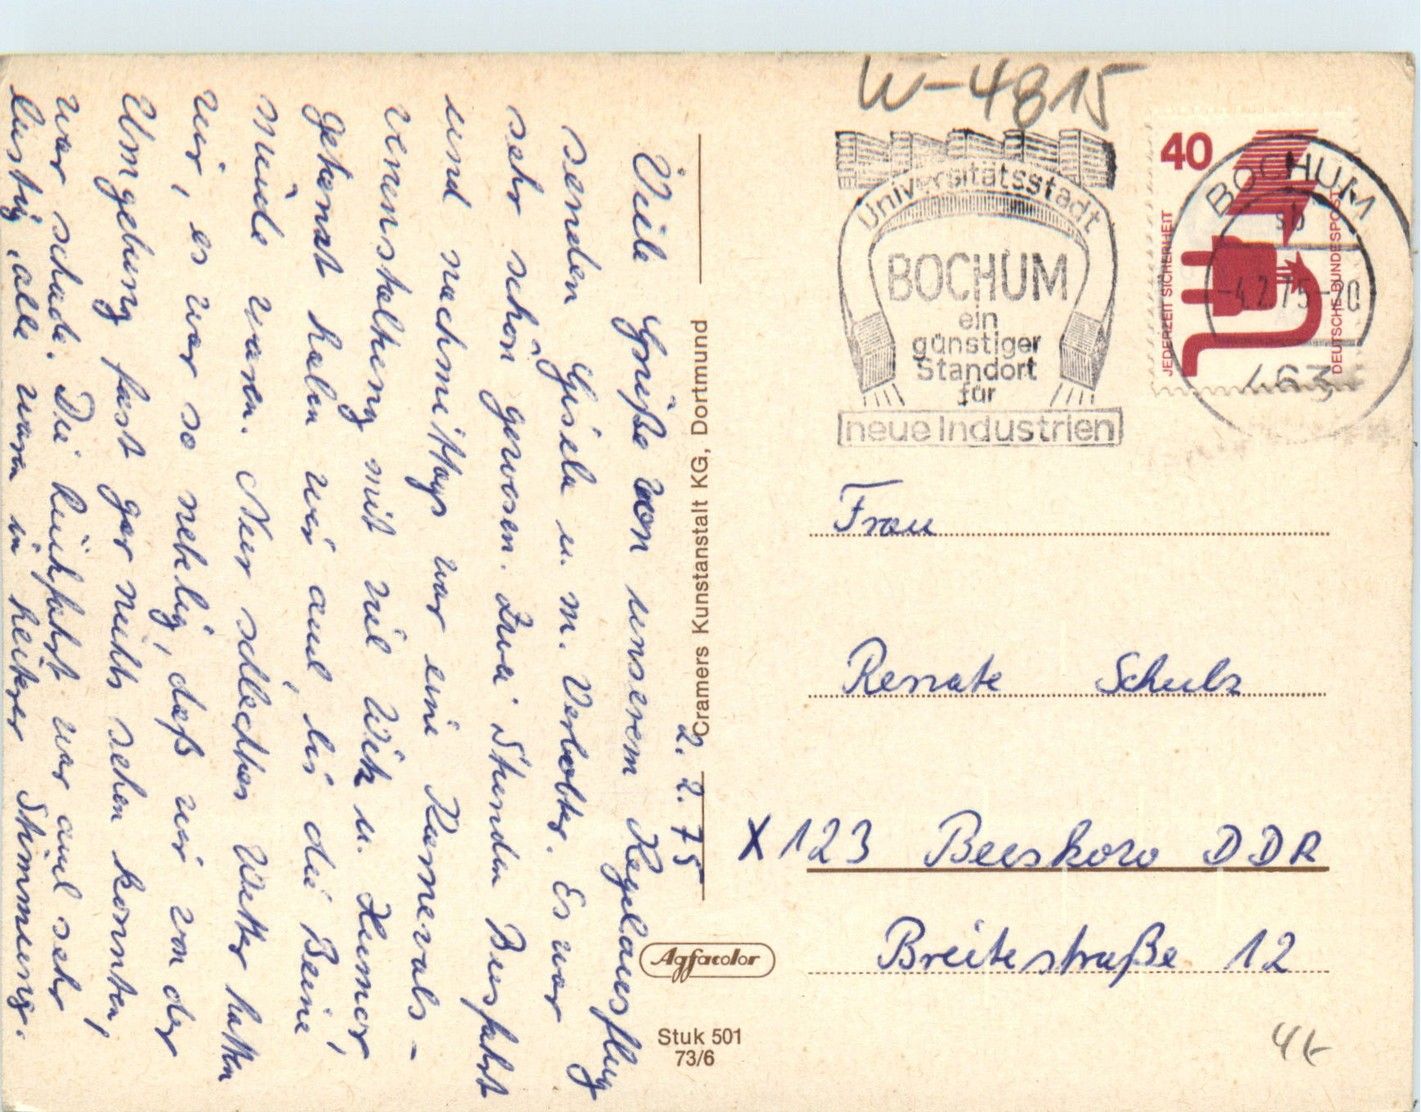 W-4815
Universitätsstadt
BOCHUM
ein
günstiger
Standort
für
neue Industrien
40
JEDERZEIT SICHERHEIT
DEUTSCHE BUNDESPOST
BOCHUM
sb
-4.2.75-20
463
2. 2. 75
Viele Grüße von unserem Kegelausflug
senden Gisela u. m. Verlobter. Es war
sehr schön gewesen. Zwei Stunden Busfahrt
und nachmittags war eine Karnevals-
veranstaltung mit viel Witz u. Humor,
getanzt haben wir auch, bis die Beine
müde waren. Nur schlechtes Wetter hatten
wir, es war so nebelig, daß wir von der
Umgebung fast gar nichts sehen konnten,
war schade. Die Rückfahrt war auch sehr
lustig, alle waren in heiterer Stimmung.
Cramers Kunstanstalt KG, Dortmund
Frau
Renate Schulz
X 123 Beeskow DDR
Breitestraße 12
Agfacolor
Stuk 501
73/6